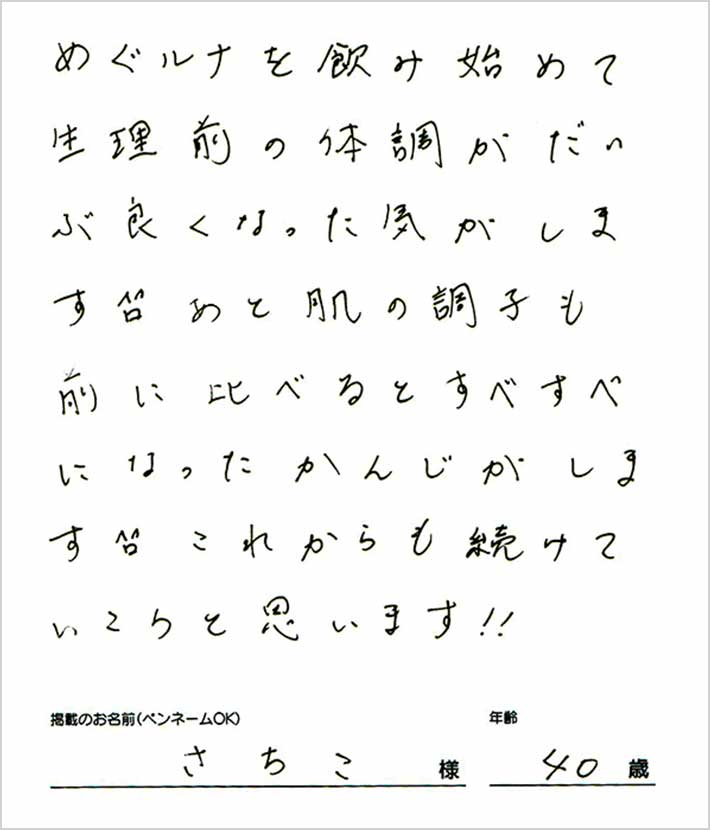 めぐルナを飲み始めて
生理前の体調がだい
ぶ良くなった気がしま
す。あと肌の調子も
前に比べるとすべすべ
になったかんじがしま
す。これからも続けて
いこうと思います!!
掲載のお名前(ペンネームOK)
年齢
さちこ 様
40 歳